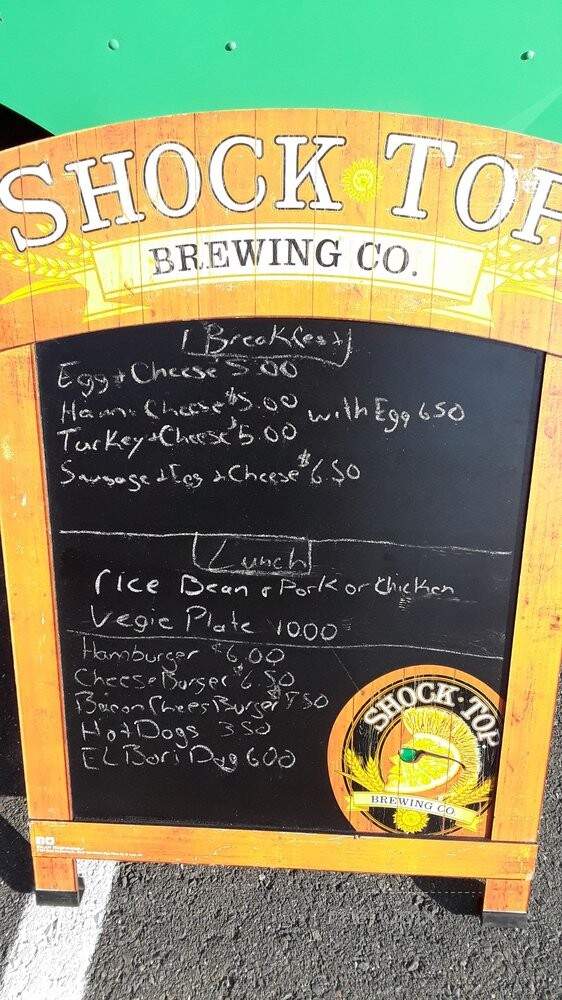 SHOCK TOP
BREWING CO.
Breakfast
Egg + Cheese 5.00
Ham + Cheese $5.00 with Egg 650
Turkey + Cheese $5.00
Sausage + Egg + Cheese $6.50
Lunch
rice Bean & Pork or Chicken
Vegie Plate 1000
Hamburger $6.00
Cheese Burger $6.50
Bacon Chees Burger $750
Hot Dogs 350
EL Bori Dog 600
SHOCK TOP
BREWING CO.